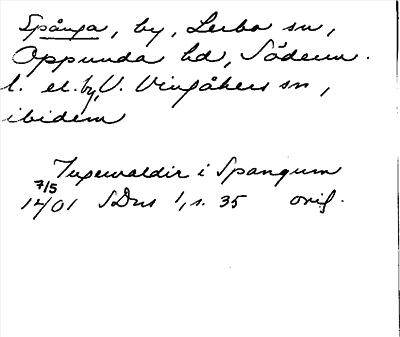 Spånga, by, Lerbo sn,
Oppunda hd, Söderm.
l. el. by, V. Vingåkers sn,
ibidem
i Spangum
7/5
1401 SDns 1, s. 35 orig.